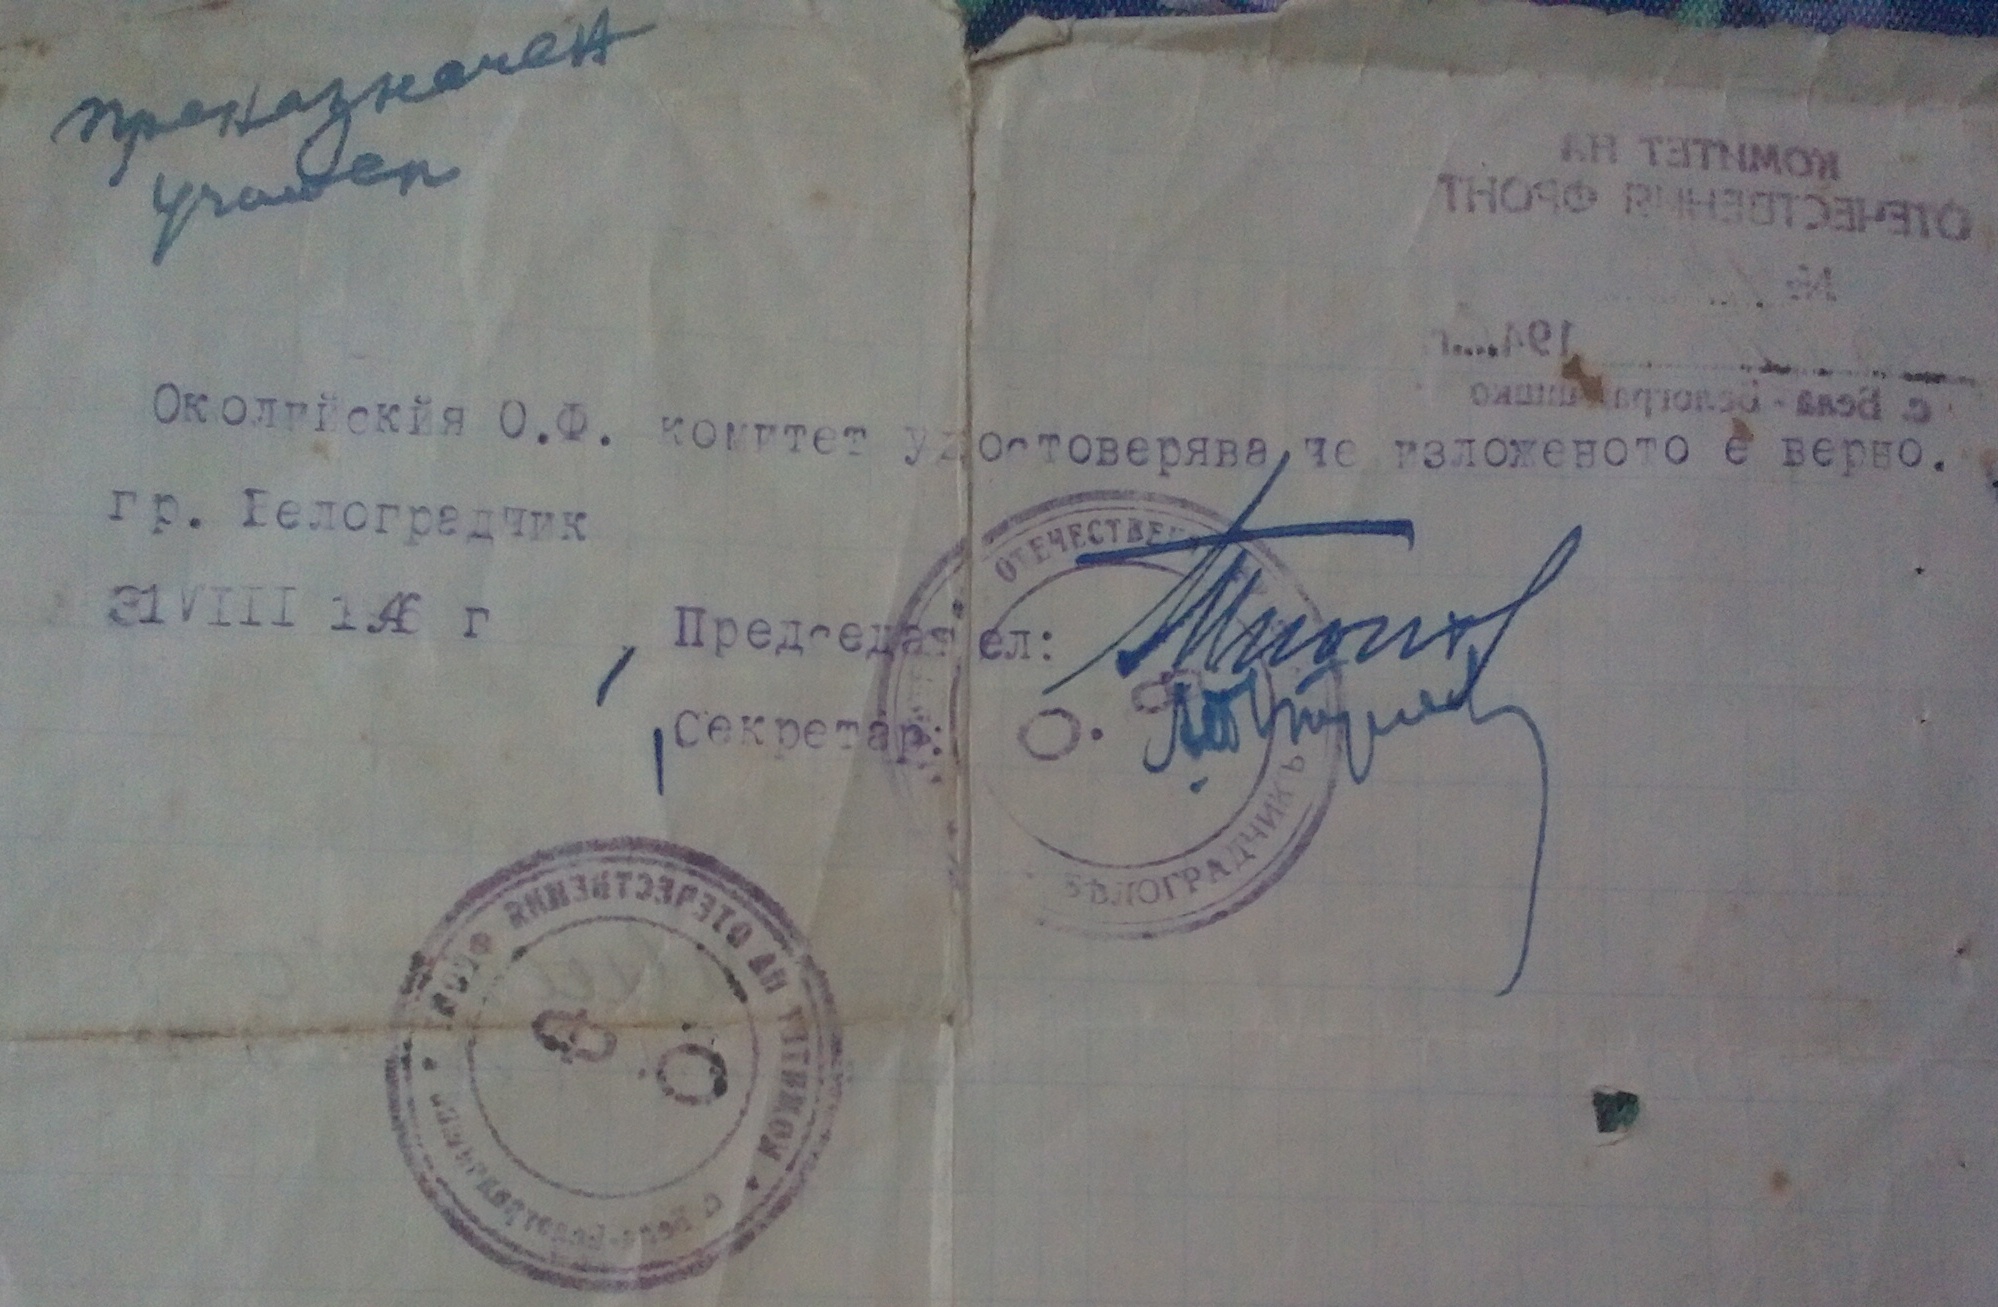 преназначен
учител
КОМИТЕТ НА
ОТЕЧЕСТВЕННИЯ ФРОНТ
№
194.....г.
с. Бела - Белоградчишко
Околийскйя О.Ф. комитет удостоверява,че изложеното е верно.
гр. Белоградчик
31 VIII 1946 г
Председател:
Секретар:
ОТЕЧЕСТВЕН
О. Ф.
БѢЛОГРАДЧИКЪ
КОМИТЕТ НА ОТЕЧЕСТВЕНИЯ ФРОНТ
О Ф
с. Бела-Белоградчишко